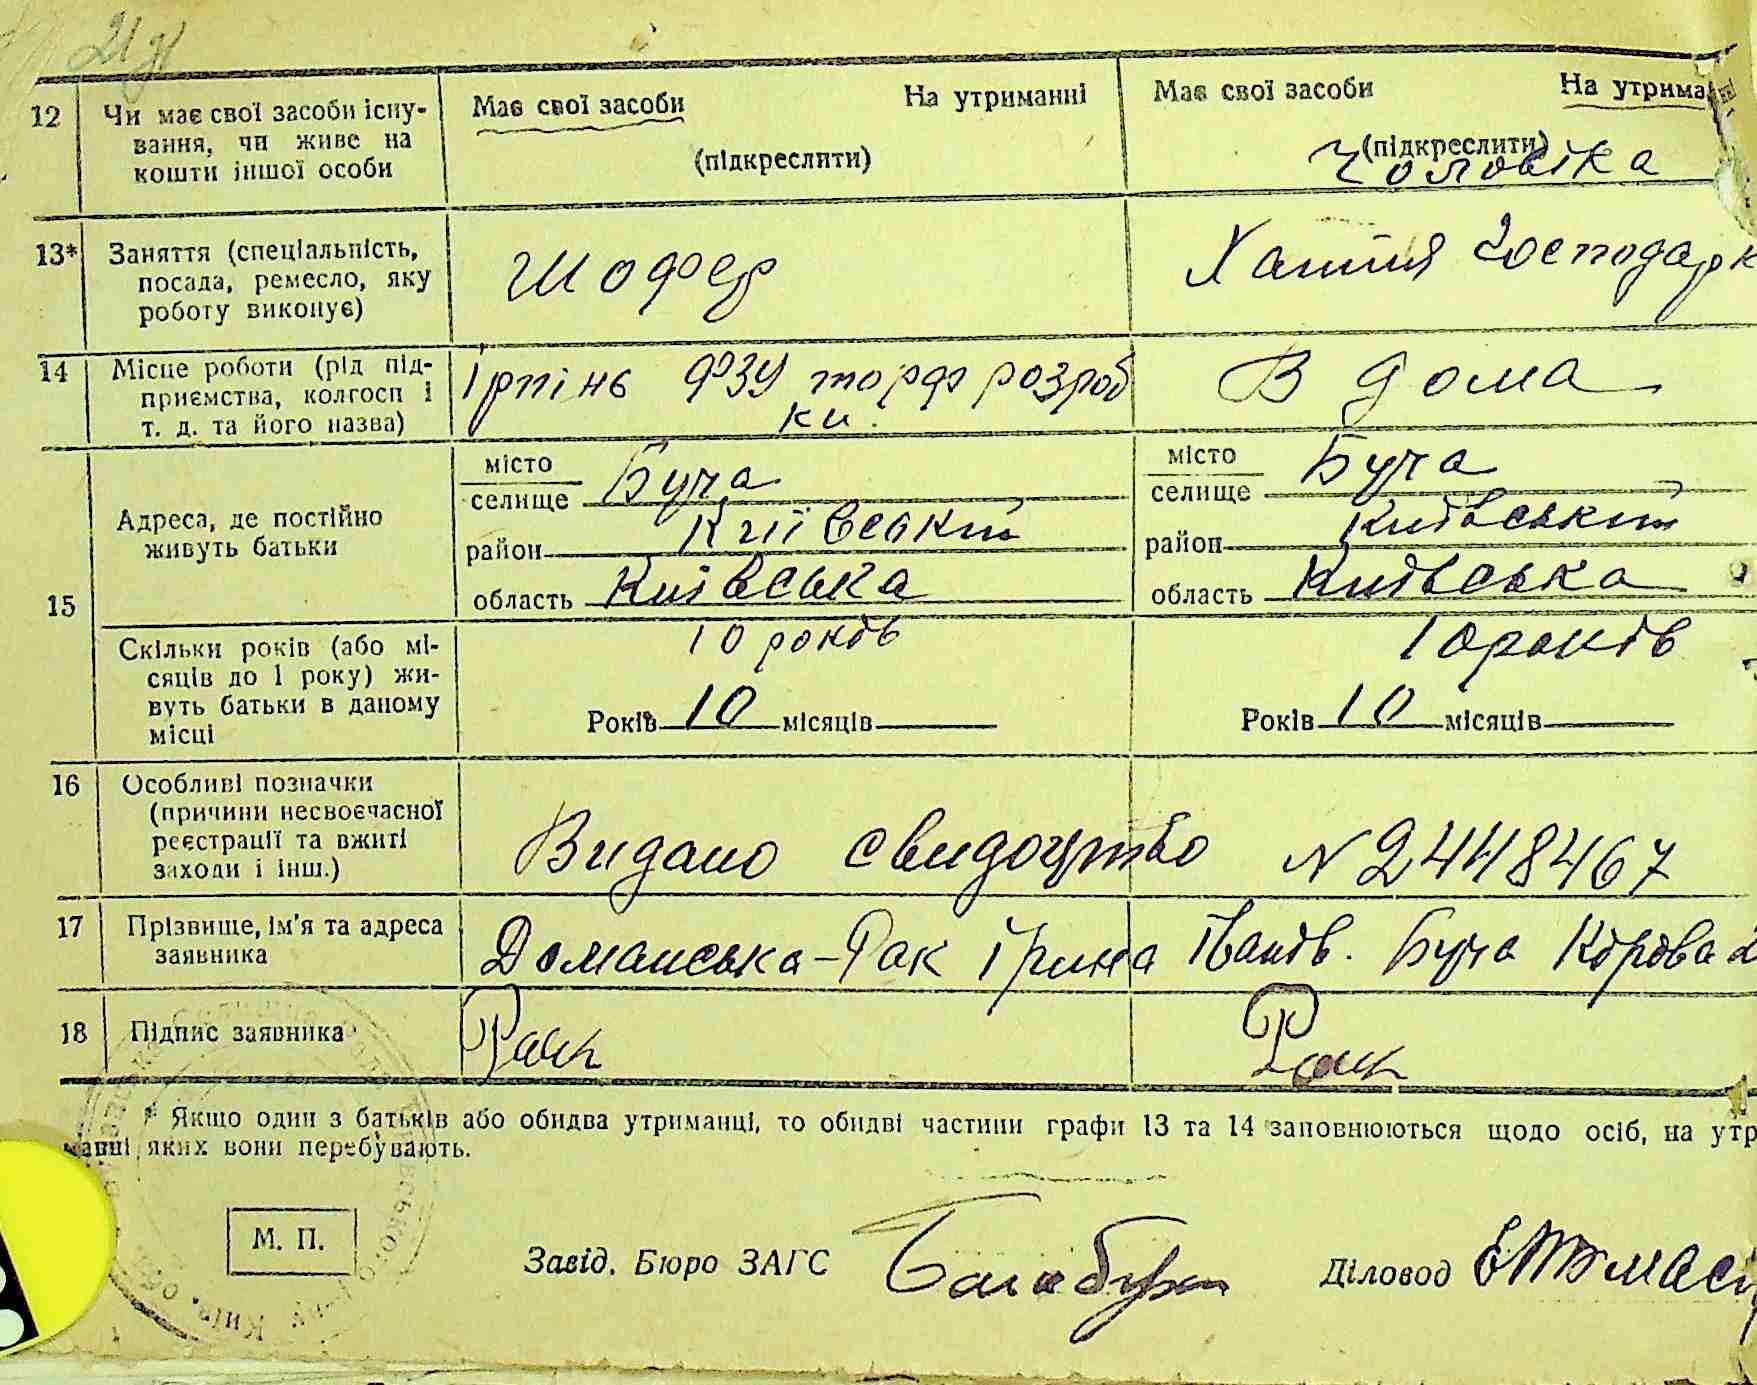 12 Чи має свої засоби існу- Має свої засоби На утриманні Має свої засоби На утрима
вання, чи живе на (підкреслити) (підкреслити)
кошти іншої особи Чоловіка
13* Заняття (спеціальність, Шофер Хатня Господарк
посада, ремесло, яку
роботу виконує)
14 Місце роботи (рід під- Ірпінь ФЗУ торф розроб В дома
приємства, колгосп і ки.
т. д. та його назва)
15 Адреса, де постійно живуть батьки
місто Буча місто Буча
селище селище
район Київський район Київський
область Київська область Київська
Скільки років (або мі- 10 років 10 років
сяців до 1 року) жи-
вуть батьки в даному Років 10 місяців Років 10 місяців
місці
16 Особливі позначки
(причини несвоєчасної
реєстрації та вжиті Видано свидоцтво N 2448467
заходи і інш.)
17 Прізвище, ім'я та адреса Доманська-Рак Ірина Іванів. Буча Кірова
заявника
18 Підпис заявника Рак Рак
* Якщо один з батьків або обидва утриманці, то обидві частини графи 13 та 14 заповнюються щодо осіб, на утр
манні яких вони перебувають.
М. П.
Завід. Бюро ЗАГС Діловод